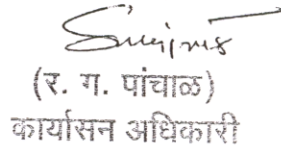 (र. ग. पांचाळ)
कार्यासन अधिकारी